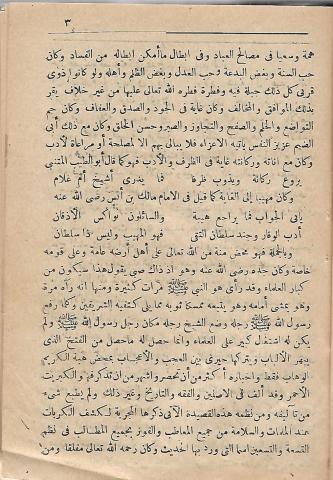 ٣
همة وسعيا فى مصالح العباد وفى ابطال ماأمكن ابطاله من الفساد وكان
حب السنة وبغض البدعة وحب العدل وبغض الظلم وأهله ولو كانوا ذوى
قربى كل ذلك جبلة فيه وفطرة فطره الله تعالى عليها من غير خلاف يقر
بذلك الموافق والمخالف وكان غاية فى الجود والصدق والعفاف وكان جم
التواضع والحلم والصفح والتجاوز والصبر وحسن الخلق وكان مع ذلك أبى
الضيم عزيز النفس باتيه الاعزاء فلا يبالى بهم الا لمصلحة أو مراعاة لأدب
وكان مع اناته وركانته غاية فى الظرف والأدب فهو كما قال أبو الطيب المتنبي
يروع ركانة ويذوب ظرفا فما يدرى أشيخ أم غلام
وكان مهيبا الى الغاية كما قيل فى الامام مالك بن أنس رضى الله عنه
يابى الجواب فما يراجع هيبة والسائلون نواكس الأذقان
أدب الوقار وجند سلطان التقى فهو المهيب وليس ذا سلطان
وبالجملة فهو محض منة من الله تعالى على أهل أرضه عامة وعلى قومه
خاصة وكان جده رضى الله عنه وهو اذ ذاك صبى يقول هذا سيكون من
كبار العلماء وقد رأى هو النبى ﷺ مرات كثيرة ومنها انه رآه مرة
وهو يمشى أمامه وهو يتبعه ممسكا ثوبه مما يلى كتفيه الشريفين وكلما رفع
رسول الله ﷺ رجله وضع الشيخ رجله مكان رجل رسول الله ﷺ ولم
يكن له اشتغال كبير على العلماء وانما حصل له ماحصل من الفتح الذى
يبهر الألباب ويتركها حيرى بين العجب والأعجاب بمحض هبة الكريم
الوهاب فقط واخباره أكثر من أن تحصر وأشهر من أن تذكر فهو والكبريت
الأحمر وقد ألف فى الاصلين والفقه والتاريخ وغير ذلك ولم يطبع شىء
من تآليفه ومن نظمه هذه القصيدة الآتى ذكرها المجربة لكشف الكربات
عند الملمات والسلامة من جميع المعاطب والفوز بجميع المطالب فى نظم
التسعة والتسعين اسما التى ورد بها الحديث وكان رحمه الله تعالى مفلقا ومن